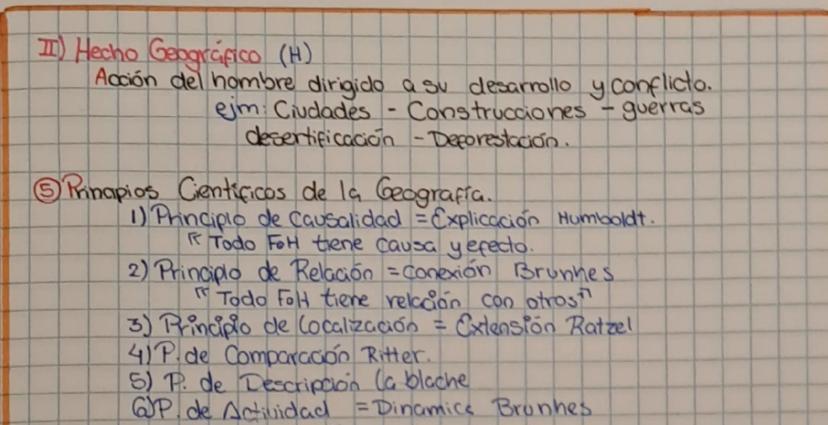 II) Hecho Geográfico (H)
Acción del hombre dirigido a su desarrollo y conflicto.
ejm: Ciudades - Construcciones - guerras
desertificación - Deforestación.
⑤ Principios Científicos de la Geografía.
1) Principio de Causalidad = Explicación Humboldt.
"Todo FoH tiene causa y efecto.
2) Principio de Relación = conexión Brunhes
"Todo FoH tiene relación con otros"
3) Principio de Localización = Extensión Ratzel
4) P. de Comparación Ritter.
5) P. de Descripción la blache
6) P. de Actividad = Dinamica Brunhes